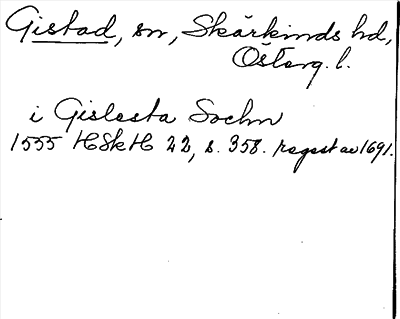 Gistad, sn, Skärkinds hd,
Österg. l.
i Gislesta Sochn
1555 HSkH 22, s. 358. regest av 1691.